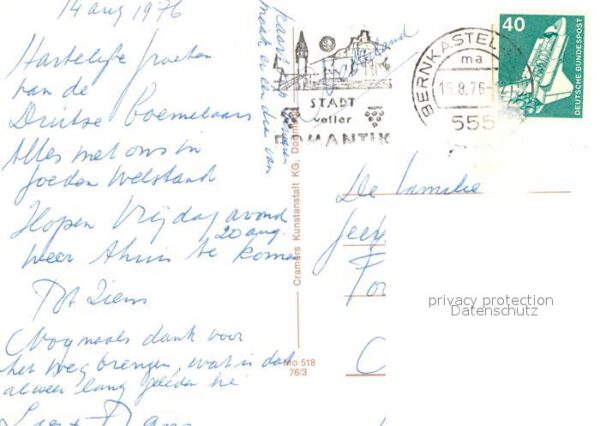 14 aug 1976
Hartelijke groeten
van de
Duitse Boemelaars
Alles met ons in
goeden welstand
Hopen Vrijdag avond
20 aug.
weer thuis te komen
Tot Ziens
Nogmaals dank voor
het weg brengen, wat is dat
alweer lang geleden hé
kaart
maak er een die van
STADT
voller
ROMANTIK
BERNKASTEL
ma
15.8.76
555
40
DEUTSCHE BUNDESPOST
Cramers Kunstanstalt KG, Dortm
Mo 518
76/3
De familie
privacy protection
Datenschutz